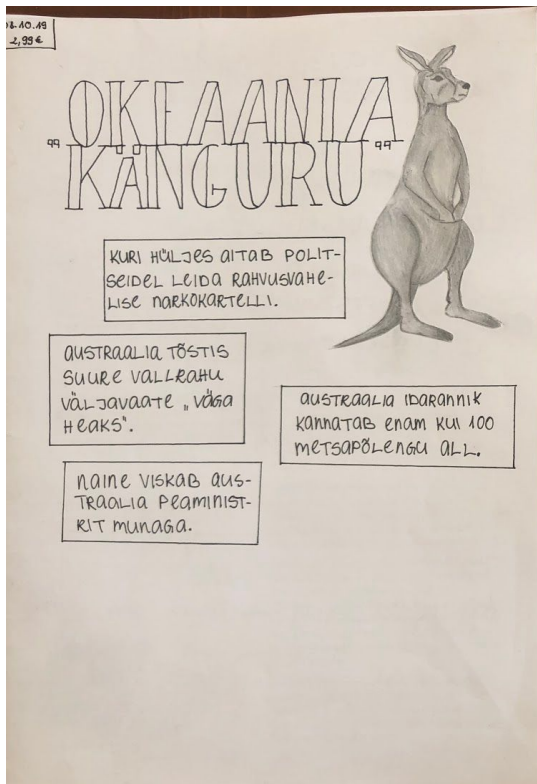 08.10.19
2,99€
"OKEAANIA
KÄNGURU"
KURI HÜLJES AITAB POLIT-
SEIDEL LEIDA RAHVUSVAHE-
LISE NARKOKARTELLI.
AUSTRAALIA TÕSTIS
SUURE VALLRAHU
VÄLJAVAATE „VÄGA
HEAKS".
AUSTRAALIA IDARANNIK
KANNATAB ENAM KUI 100
METSAPÕLENGU ALL.
NAINE VISKAB AUS-
TRAALIA PEAMINIST-
RIT MUNAGA.